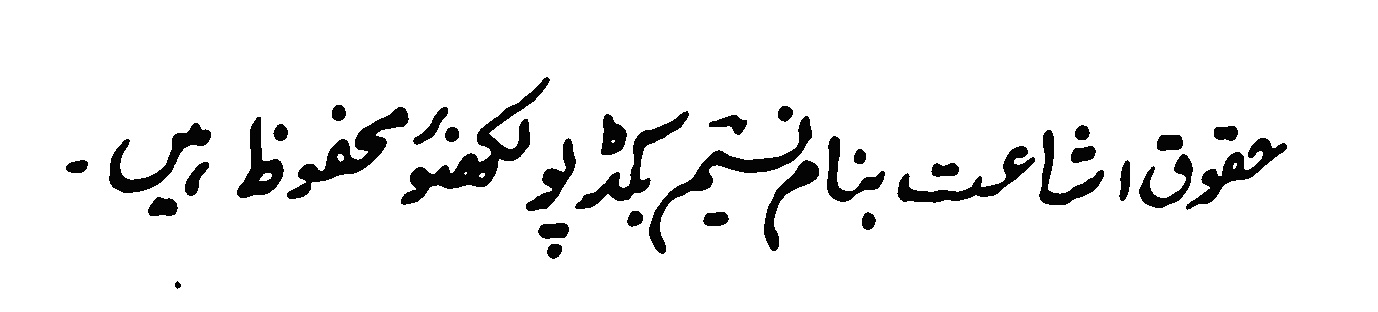 حقوق اشاعت بنام نسیم بکڈپو لکھنؤ محفوظ ہیں۔